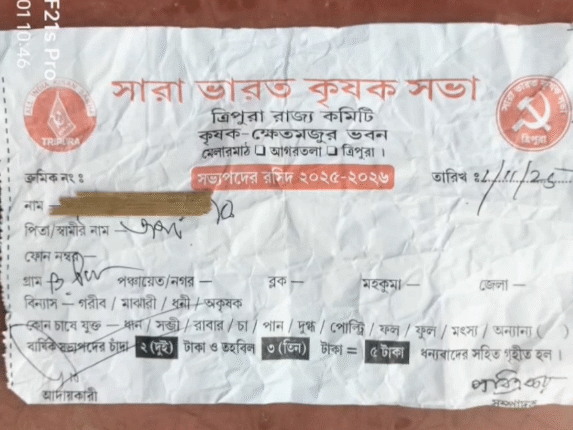 F21s Pro
01 10:46
সারা ভারত কৃষক সভা
ত্রিপুরা রাজ্য কমিটি
কৃষক-ক্ষেতমজুর ভবন
মেলারমাঠ ❑ আগরতলা ❑ ত্রিপুরা ।
TRIPURA
ত্রিপুরা
ক্রমিক নং ঃ
সভ্যপদের রসিদ ২০২৫-২০২৬
তারিখ ঃ 1/11/25
নাম –
পিতা/স্বামীর নাম –
ফোন নম্বর –
গ্রাম পঞ্চায়েত/নগর – ব্লক – মহকুমা – জেলা –
বিন্যাস – গরীব / মাঝারী / ধনী / অকৃষক
কোন চাষে যুক্ত – ধান / সব্জী / রাবার / চা / পান / দুগ্ধ / পোল্ট্রি / ফল / ফুল / মৎস্য / অন্যান্য ( )
বার্ষিক সভ্যপদের চাঁদা ২ (দুই) টাকা ও তহবিল ৩ (তিন) টাকা = ৫ টাকা ধন্যবাদের সহিত গৃহীত হল ।
আদায়কারী
সম্পাদক